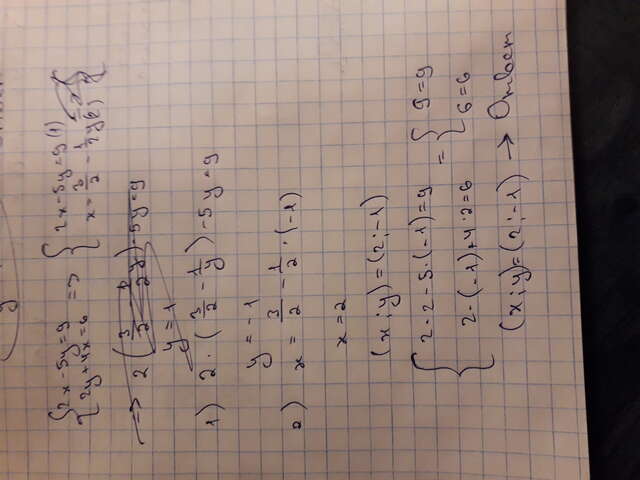 {2x-5y=9 2y+4x=6 => {2x-5y=9 (1) x=3/2-1/2y(2)
=> 2(3/2-1/2y)-5y=9
y=-1
1) 2·(3/2-1/y)-5y=9
y=-1
2) x=3/2-1/2·(-1)
x=2
(x;y)=(2;-1)
{2·2-5·(-1)=9 2·(-1)+4·2=6 = {9=9 6=6
(x;y)=(2;-1) → Ответ